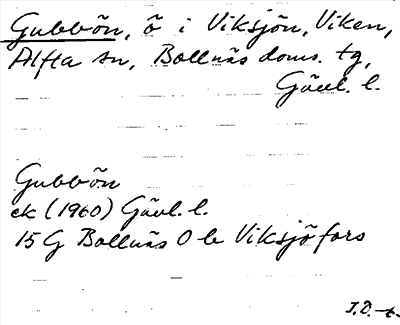 Gubbön, ö i Viksjön, Viken,
Alfta sn, Bollnäs doms. tg,
Gävl. l.
Gubbön
ek (1960) Gävl. l.
15G Bollnäs 0 b Viksjöfors
J.D-t.